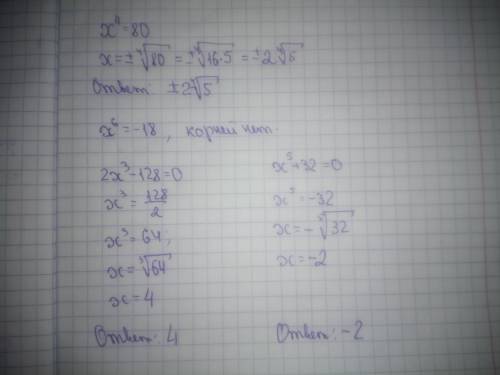 x⁴=80
x=±⁴√80 = ±⁴√16·5 = ±2⁴√5
Ответ ±2⁴√5
x⁶=-18, корней нет.
2x³-128=0
x³=128/2
x³=64,
x=³√64
x=4
Ответ: 4
x⁵+32=0
x⁵=-32
x=-⁵√32
x=-2
Ответ: -2